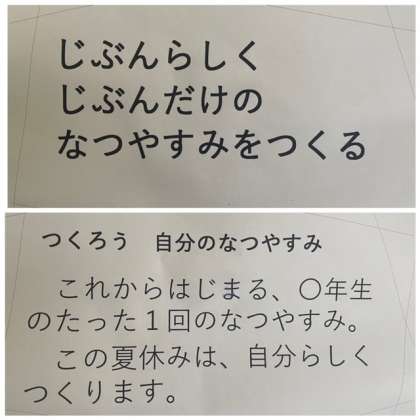 じぶんらしく
じぶんだけの
なつやすみをつくる
つくろう　自分のなつやすみ
これからはじまる、〇年生
のたった１回のなつやすみ。
この夏休みは、自分らしく
つくります。